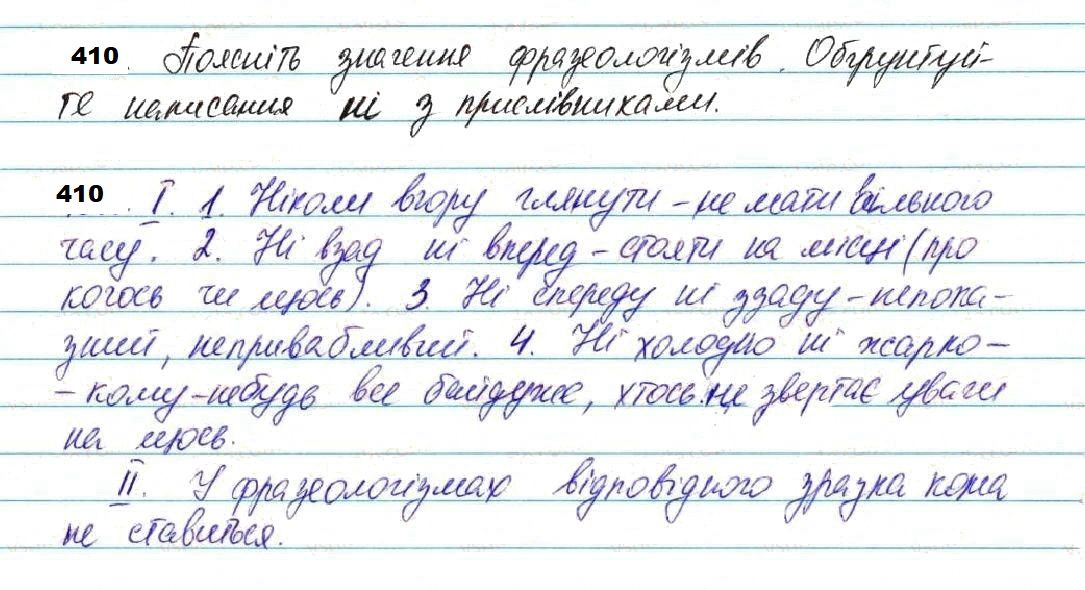 410. Поясніть значення фразеологізмів. Обґрунтуй-
те написання ні з прислівниками.
410 I. 1. Ніколи вгору глянути – не мати вільного
часу. 2. Ні взад ні вперед – стояти на місці (про
когось чи щось). 3. Ні спереду ні ззаду – непока-
зний, непривабливий. 4. Ні холодно ні жарко –
– кому-небудь все байдуже, хтось не звертає уваги
на щось.
II. У фразеологізмах відповідного зразка кома
не ставиться.